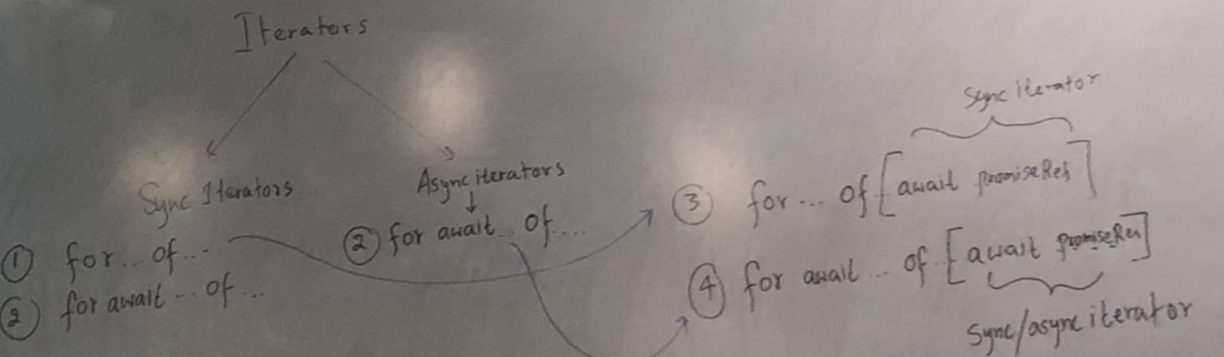 Iterators
Sync Iterators
① for... of...
② for await... of...
Async iterators
② for await... of....
Sync Iterator
③ for... of [await promiseRef]
④ for await... of [await promiseRef]
Sync/async iterator